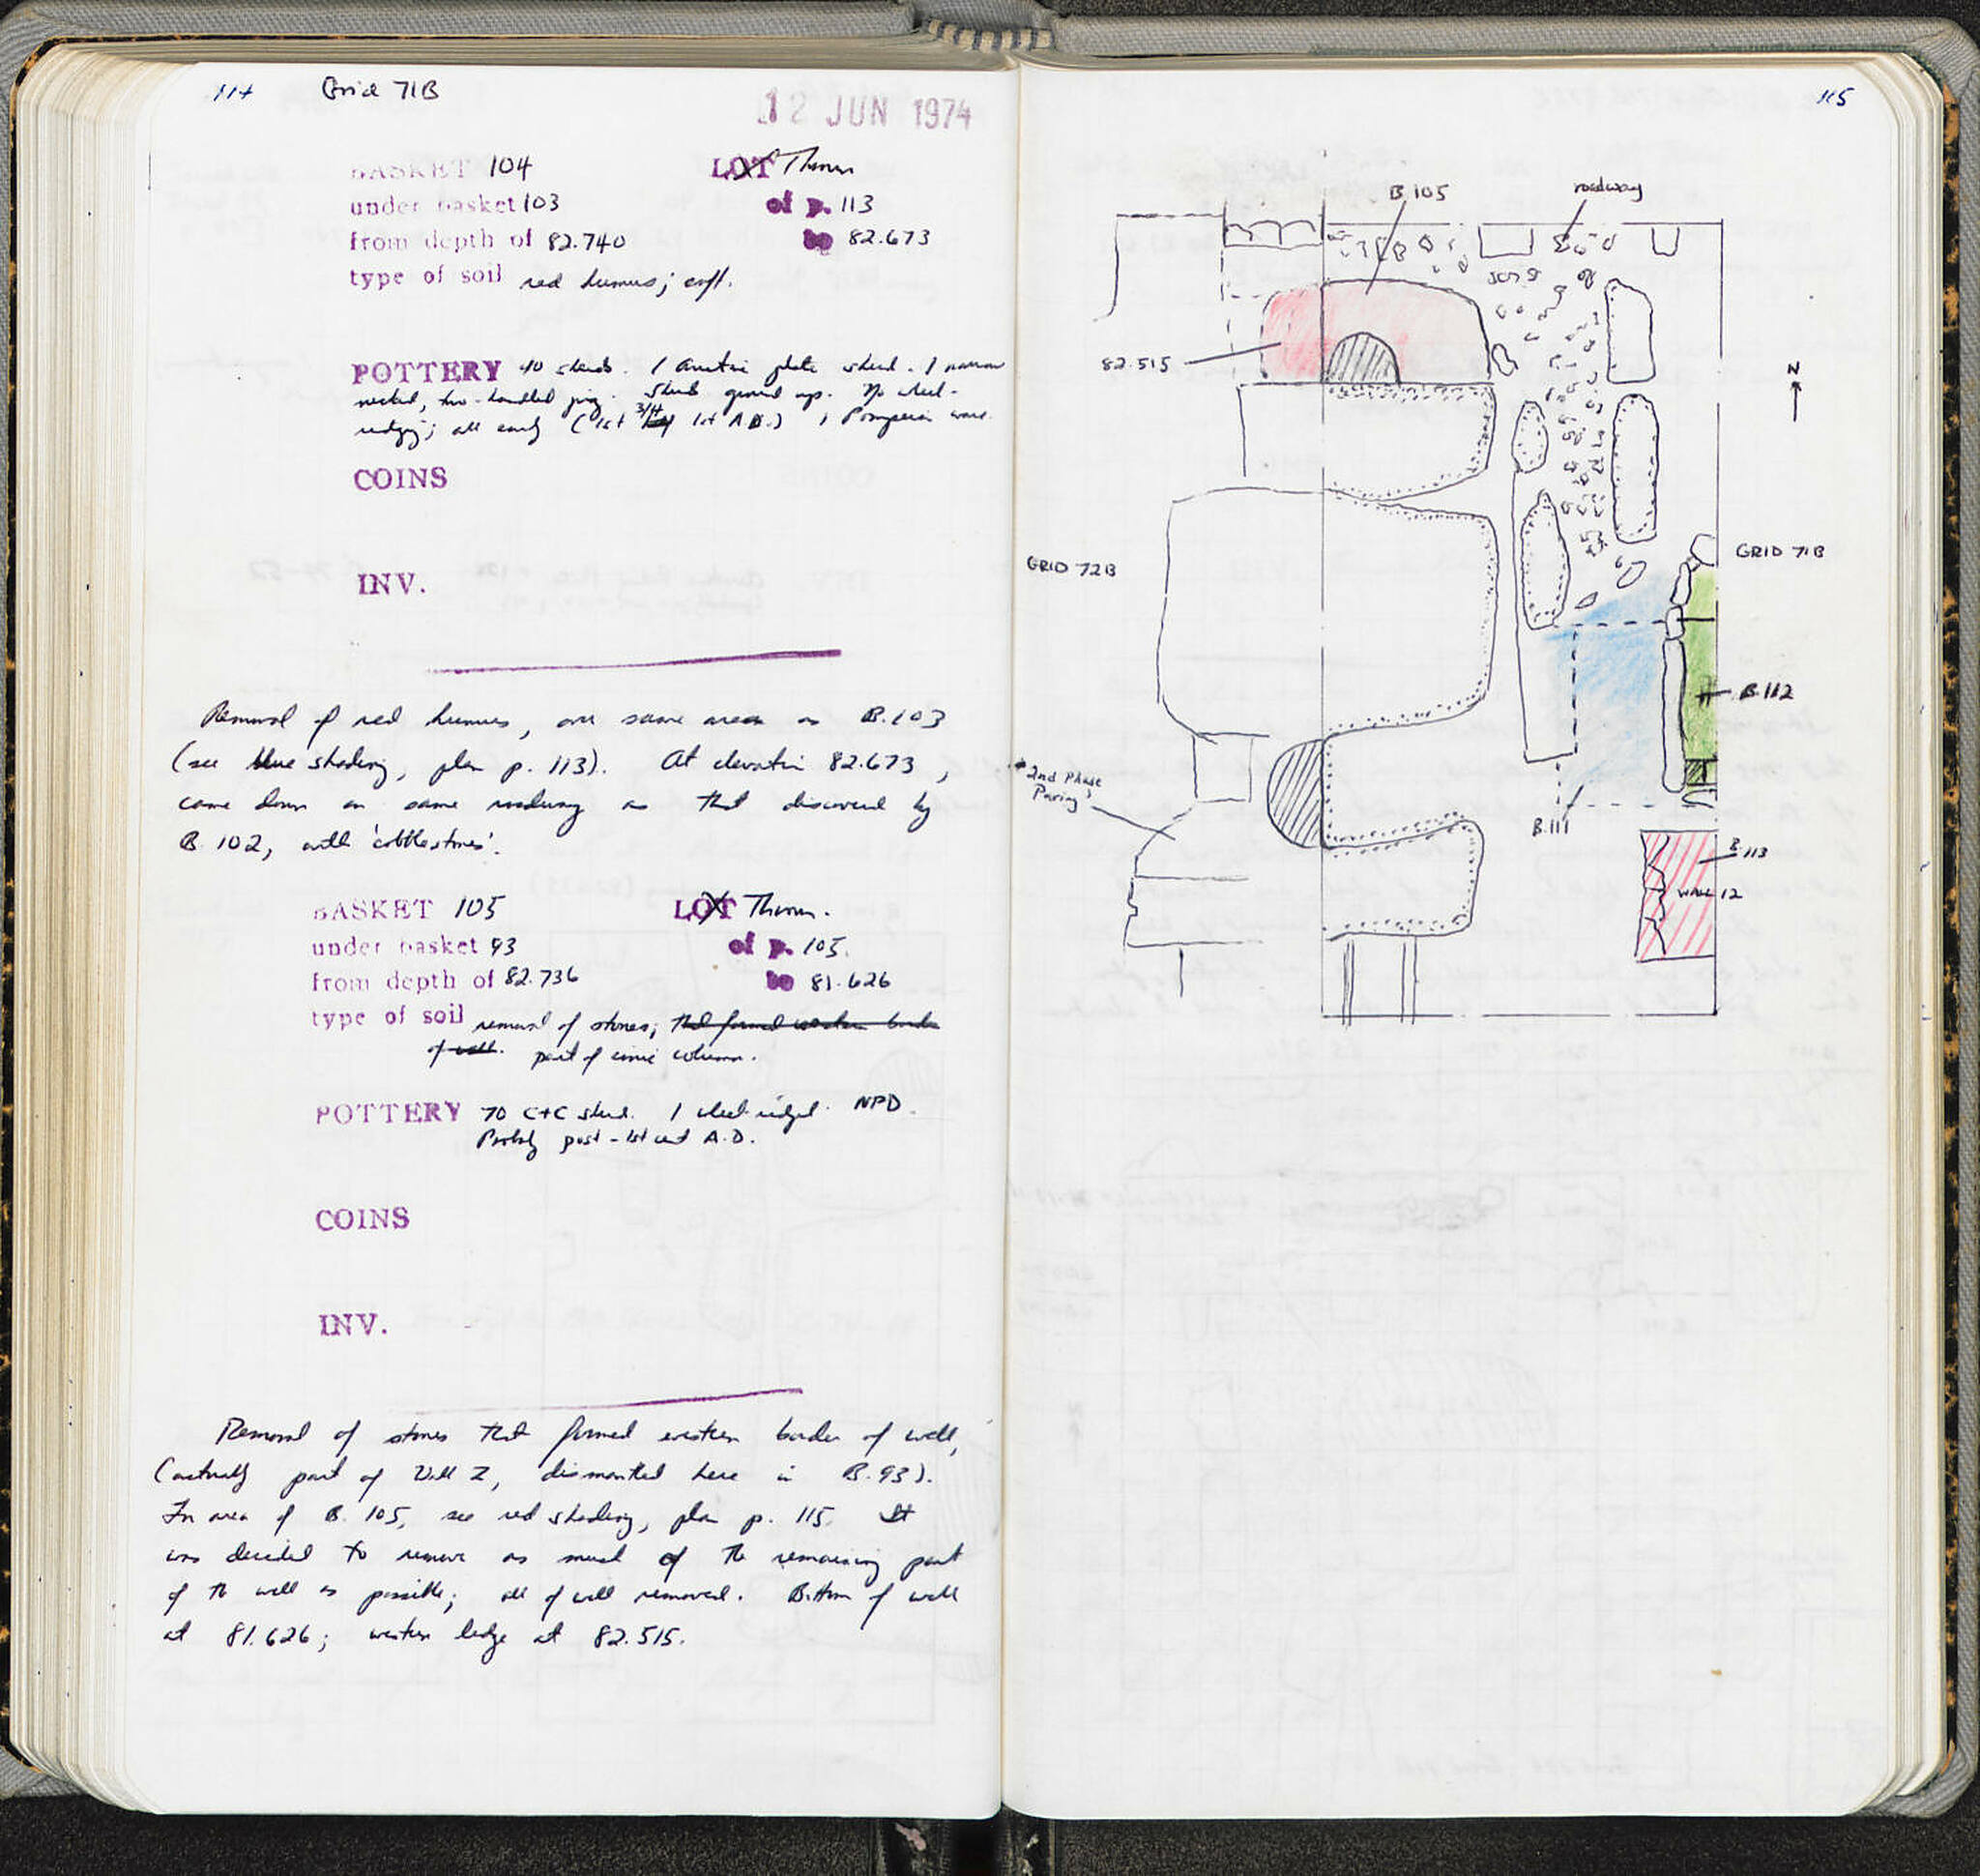 114 Grid 71B
12 JUN 1974
BASKET 104 LOT Thoron
under basket 103 of p. 113
from depth of 82.740 to 82.673
type of soil red humus; soft.
POTTERY 40 sherds. 1 plate sherd. 1 narrow
necked, two-handled jug. Sherds ground up. No wheel-
ridging; all early (1st 3/4 of 1st A.D.) 1 Pompeian ware.
COINS
INV.
Removal of red humus, over same area as B.103
(see blue shading, plan p. 113). At elevation 82.673,
came down on same roadway as that discovered by
B. 102, with 'cobblestones'.
BASKET 105 LOT
under basket 93 of p. 105.
from depth of 82.736 to 81.626
type of soil removal of stones; that formed western border
of well. part of ionic column.
POTTERY 70 C+C sherds. 1 wheel-ridged. NPD.
Probably post-1st cent A.D.
COINS
INV. -
Removal of stones that formed western border of well,
(actually part of Well Z, dismantled here in B.93).
In area of B. 105, see red shading, plan p. 115. It
was decided to remove as much of the remaining part
of the well as possible; all of well removed. Bottom of well
at 81.626; western ledge at 82.515.
115
B.105 roadway
82.515
N
GRID 72B
GRID 71B
B.112
2nd Phase
Paving
B.111
B.113
WALL 12